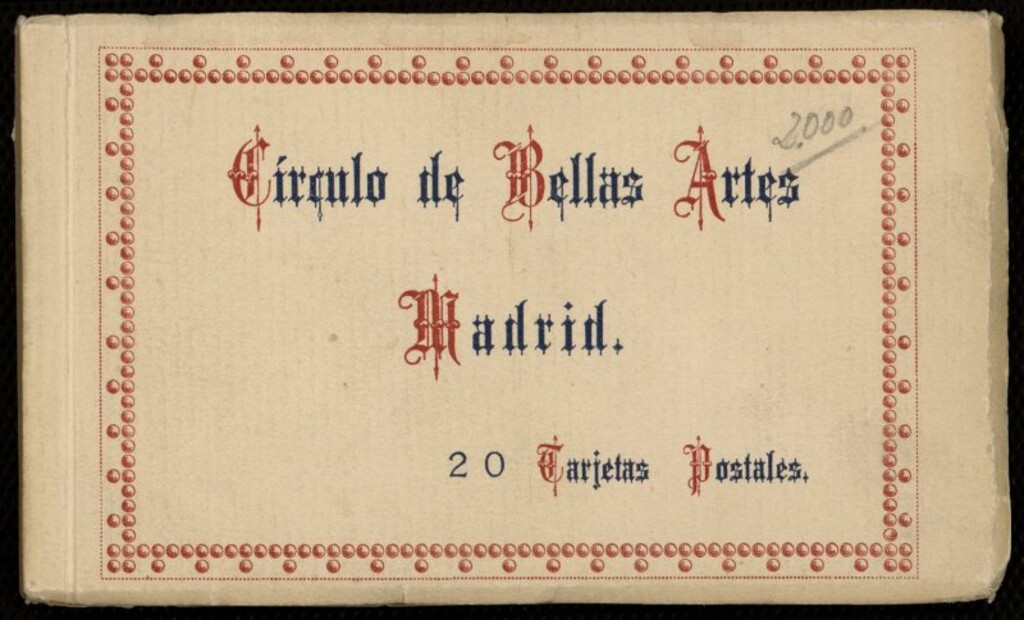 2.000
Círculo de Bellas Artes
Madrid.
20 Tarjetas Postales.